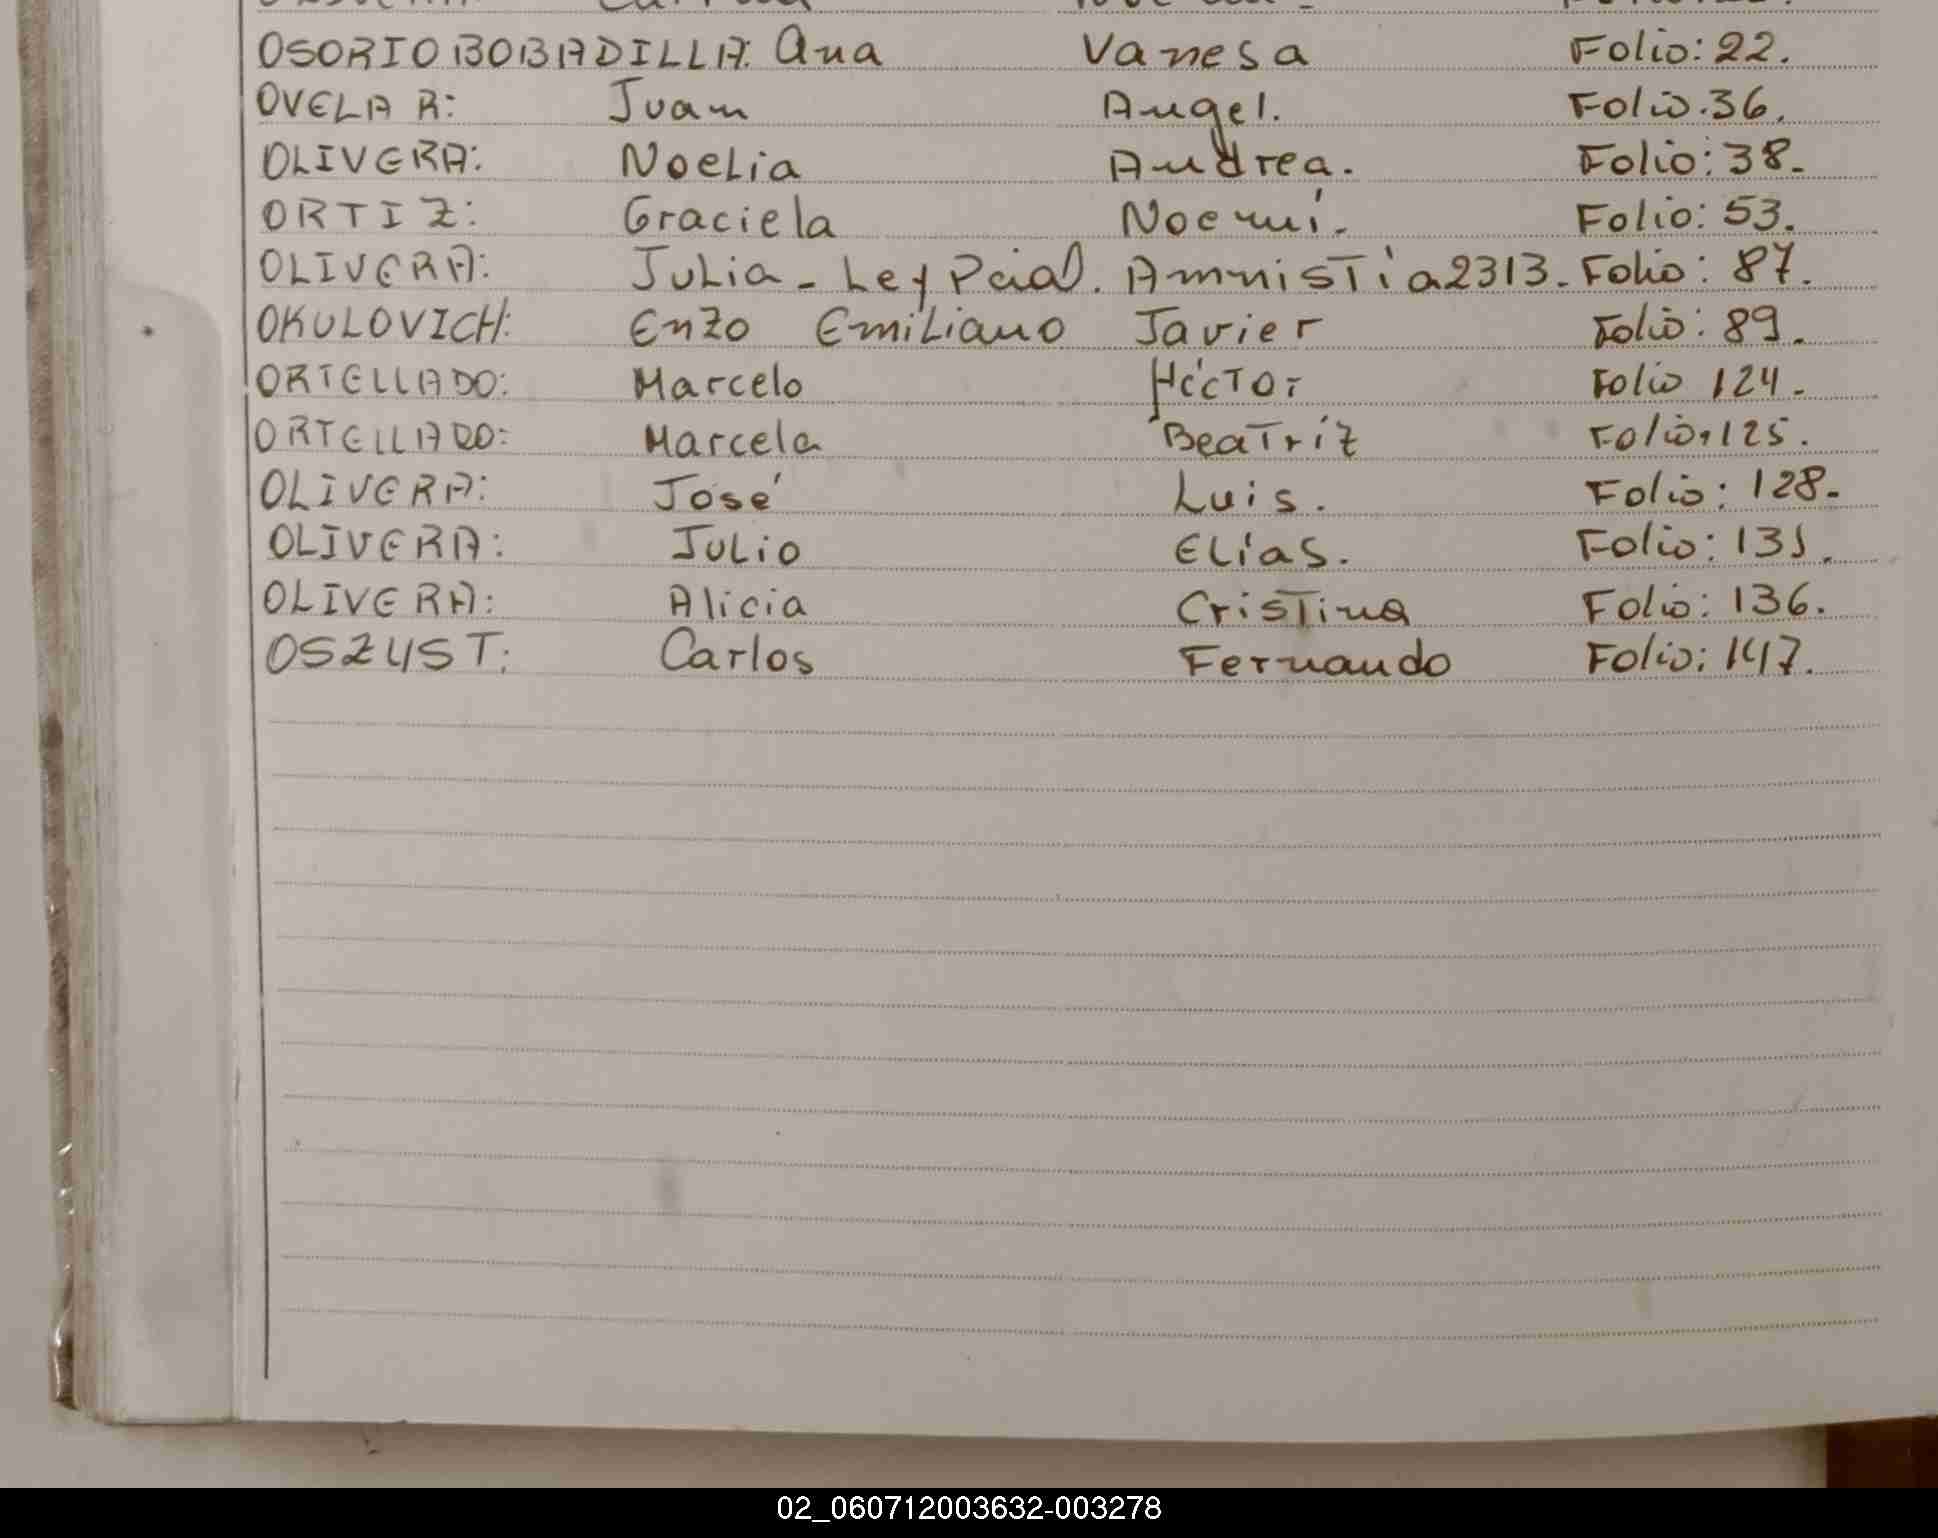 OSORIO BOBADILLA: Ana Vanesa Folio: 22.
OVELAR: Juan Angel. Folio. 36.
OLIVERA: Noelia Andrea. Folio: 38.
ORTIZ: Graciela Noemí. Folio: 53.
OLIVERA: Julia - Ley Pcial. Amnistia 2313. Folio: 87.
OKULOVICH: Enzo Emiliano Javier Folio: 89.
ORTELLADO: Marcelo Héctor Folio 124.
ORTELLADO: Marcela Beatríz Folio. 125.
OLIVERA: José Luis. Folio: 128.
OLIVERA: Julio Elías. Folio:
OLIVERA: Alicia Cristina Folio: 136.
OSZUST: Carlos Fernando Folio: 147.
02_060712003632-003278